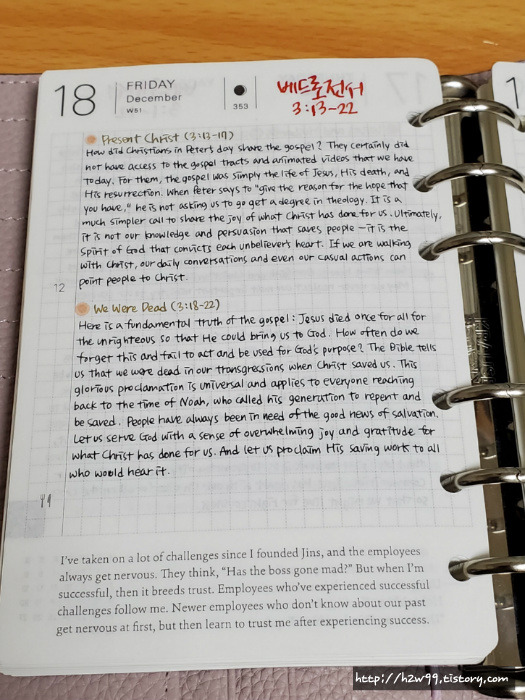 18
FRIDAY
December
W51
353
베드로전서
3:13-22
Present Christ (3:13-17)
How did Christians in Peter's day share the gospel? They certainly did
not have access to the gospel tracts and animated videos that we have
today. For them, the gospel was simply the life of Jesus, His death, and
His resurrection. When Peter says to "give the reason for the hope that
you have," he is not asking us to go get a degree in theology. It is a
much simpler call to share the joy of what Christ has done for us. Ultimately,
it is not our knowledge and persuasion that saves people – it is the
Spirit of God that convicts each unbeliever's heart. If we are walking
with Christ, our daily conversations and even our casual actions can
point people to Christ.
12
We Were Dead (3:18-22)
Here is a fundamental truth of the gospel: Jesus died once for all for
the unrighteous so that He could bring us to God. How often do we
forget this and fail to act and be used for God's purpose? The Bible tells
us that we were dead in our transgressions when Christ saved us. This
glorious proclamation is universal and applies to everyone reaching
back to the time of Noah, who called his generation to repent and
be saved. People have always been in need of the good news of salvation.
Let us serve God with a sense of overwhelming joy and gratitude for
what Christ has done for us. And let us proclaim His saving work to all
who would hear it.
I've taken on a lot of challenges since I founded Jins, and the employees
always get nervous. They think, "Has the boss gone mad?" But when I'm
successful, then it breeds trust. Employees who've experienced successful
challenges follow me. Newer employees who don't know about our past
get nervous at first, but then learn to trust me after experiencing success.
http://h2w99.tistory.com